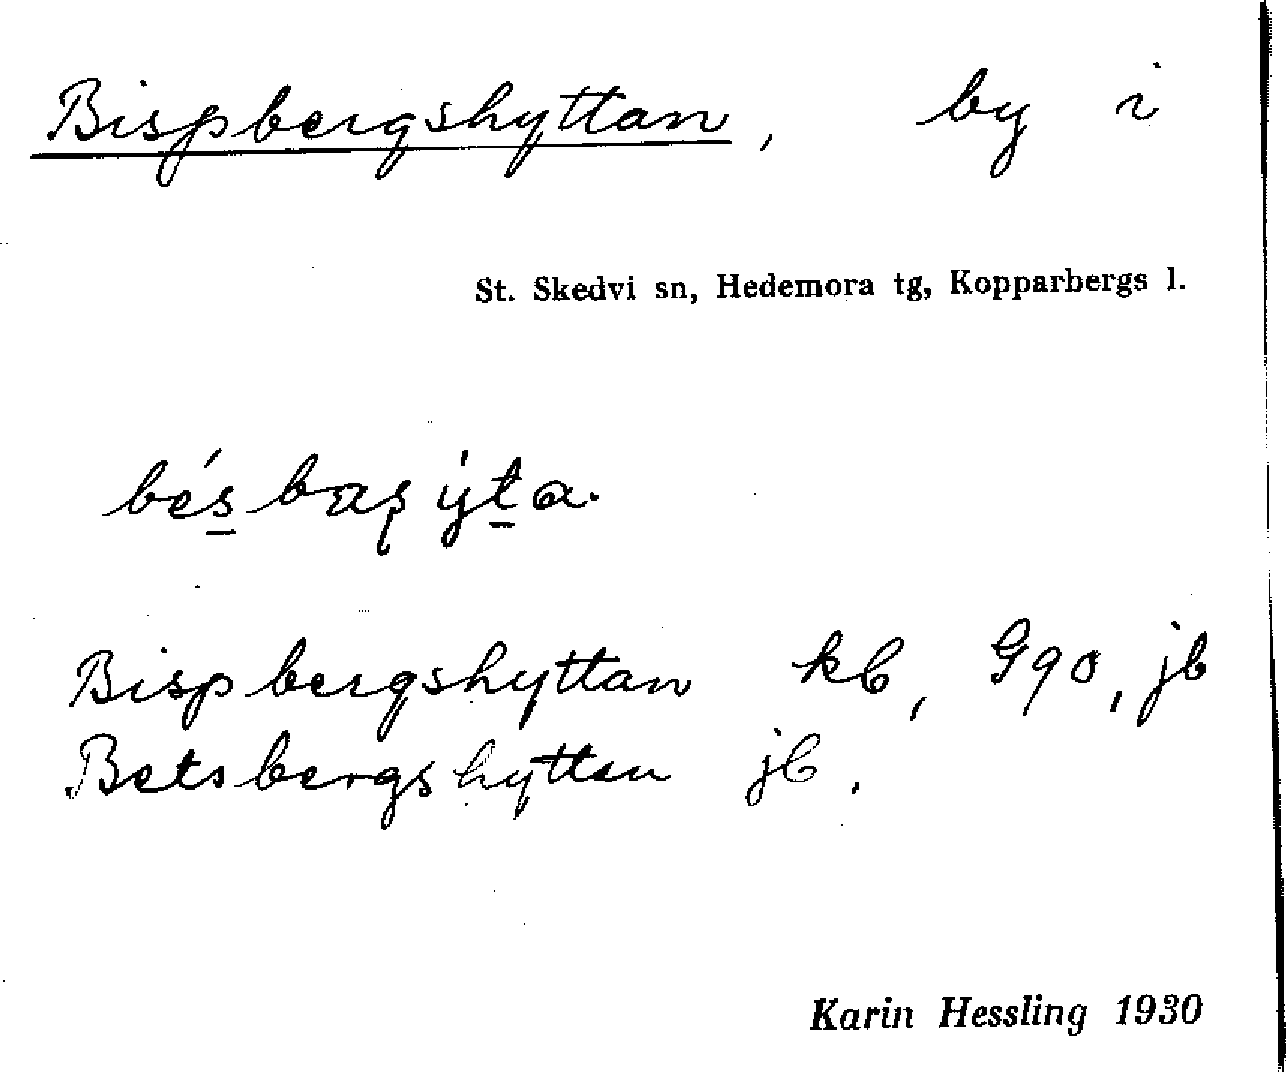 Bispbergshyttan, by i
St. Skedvi sn, Hedemora tg, Kopparbergs l.
Bispbergshyttan kb, G90, jb
Betsbergshyttan jb.
Karin Hessling 1930